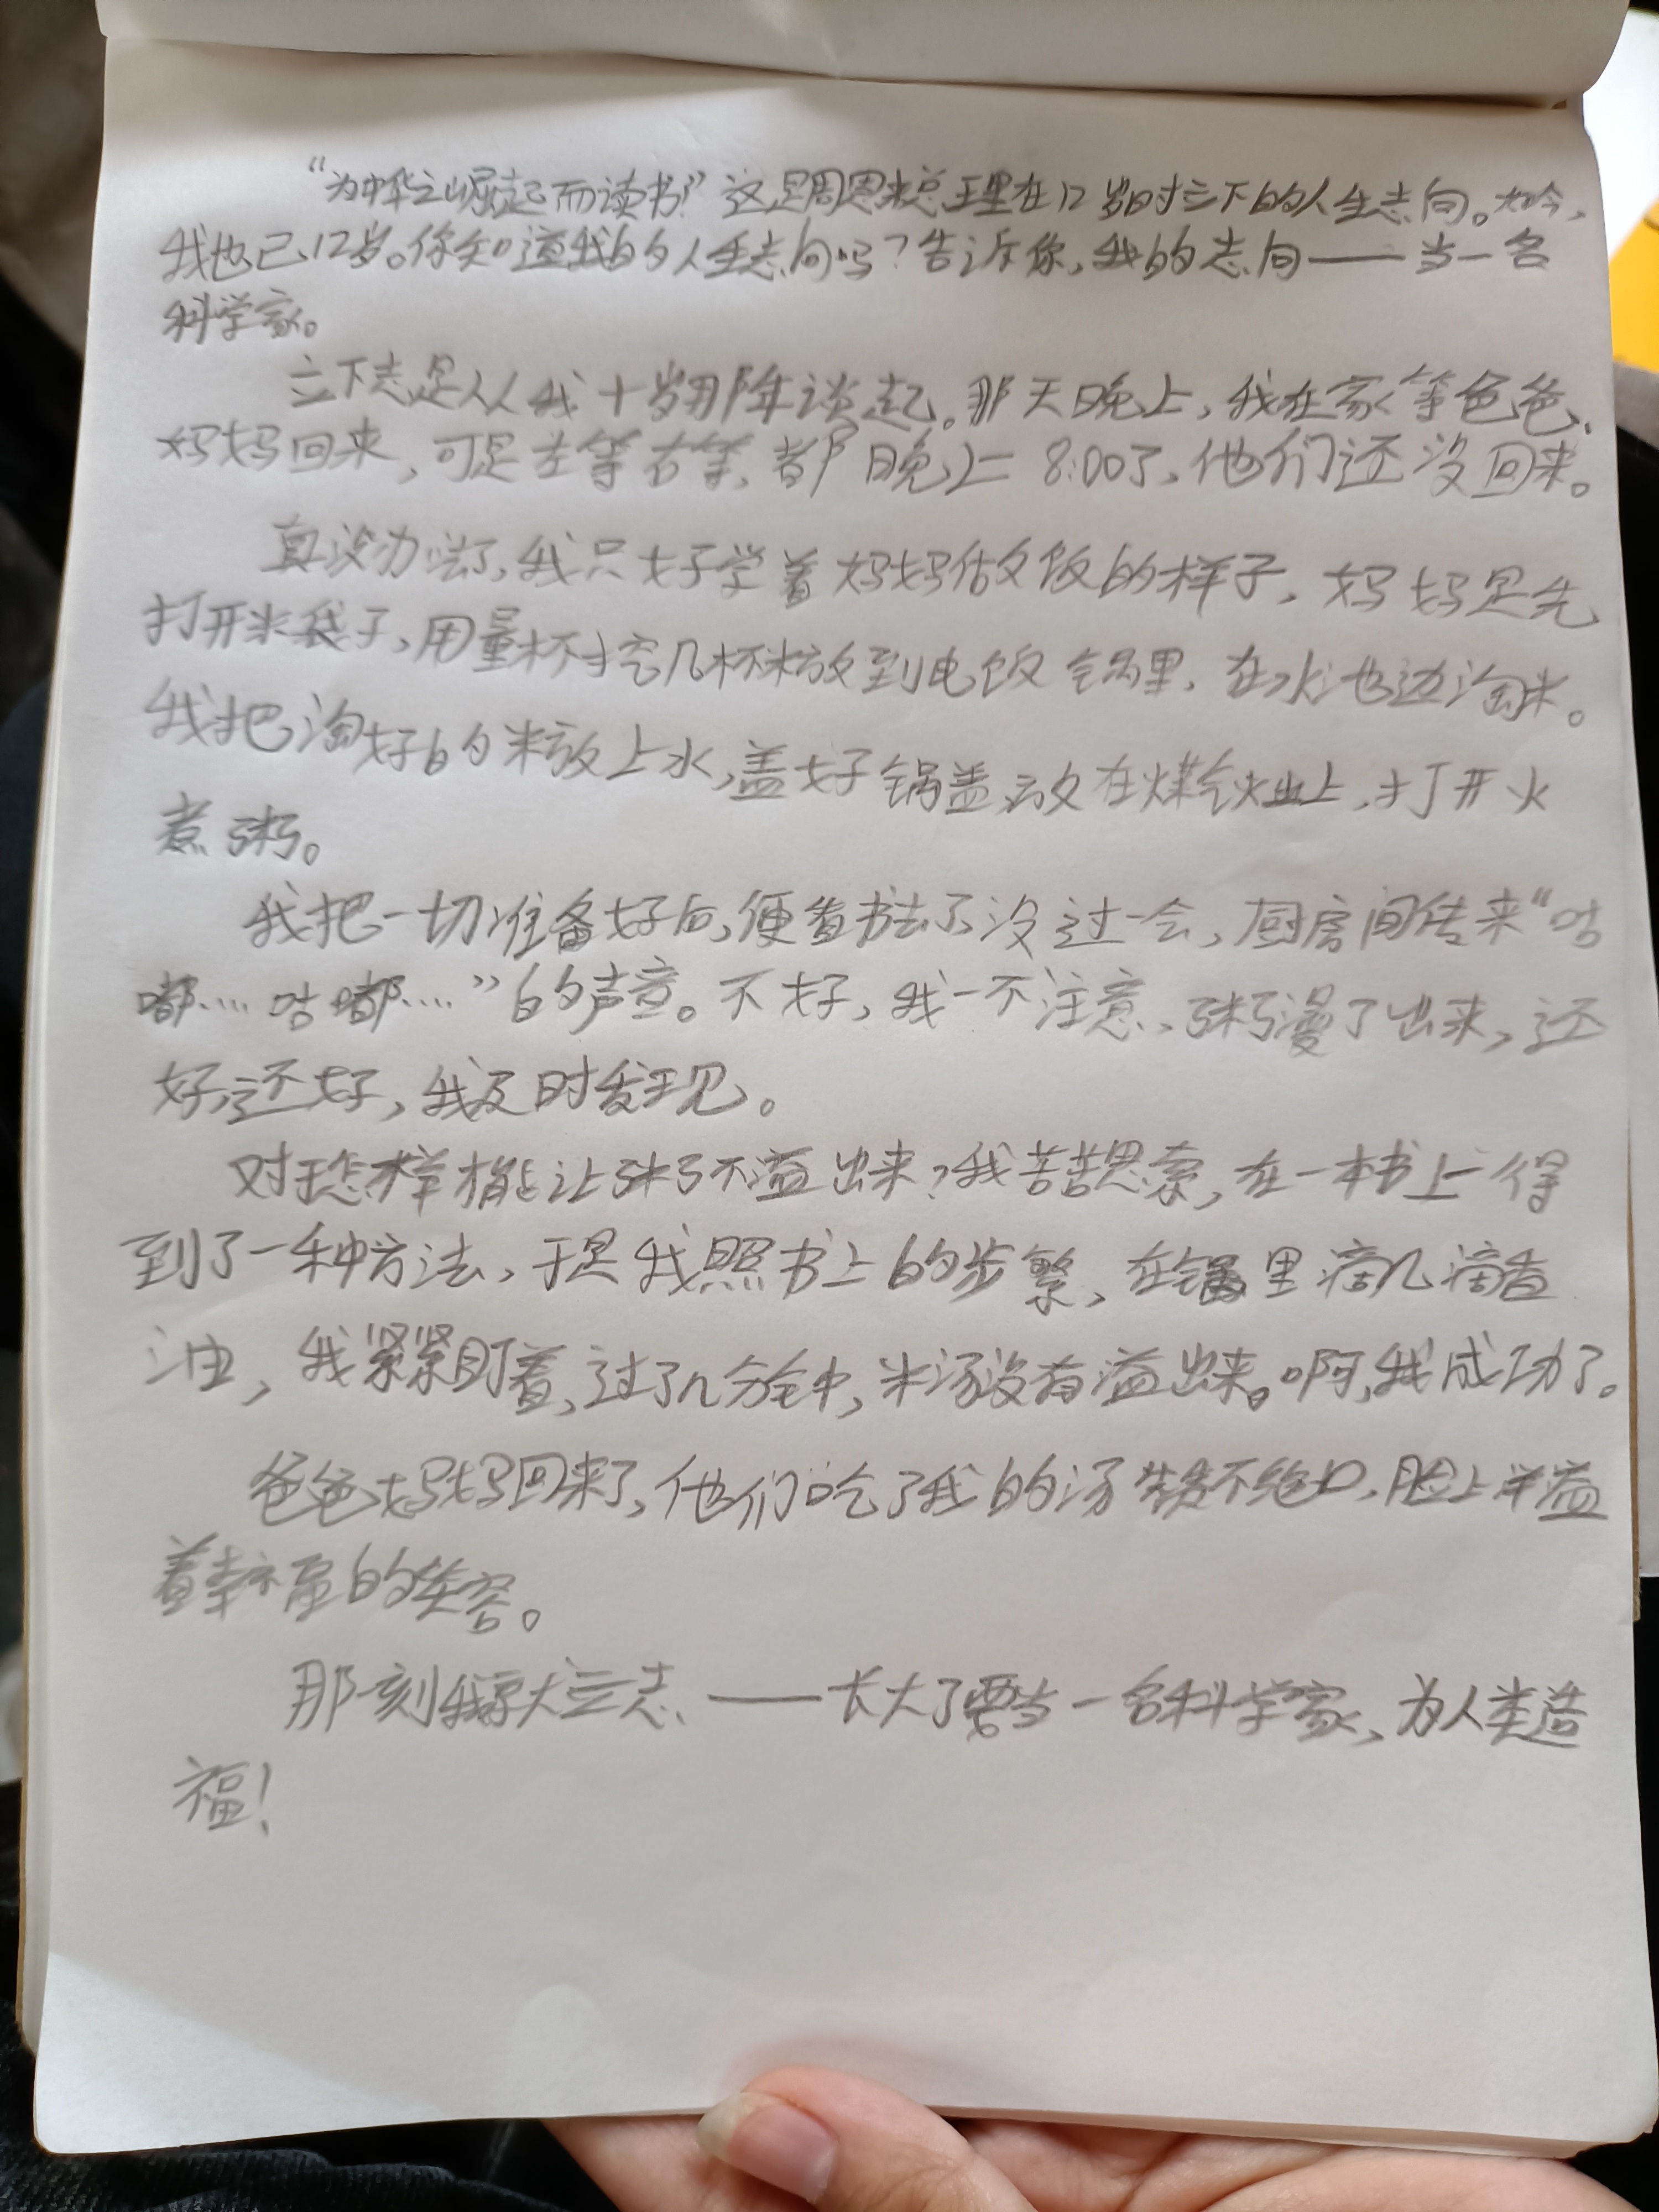 “为中华之崛起而读书!”这是周恩来总理在12岁时立下的人生志向。如今,
我也已12岁。你知道我的人生志向吗?告诉你,我的志向——当一名
科学家。
立下志是从我十岁那年谈起。那天晚上,我在家等爸爸、
妈妈回来,可是左等右等,都晚上8:00了,他们还没回来。
真没办法了,我只好学着妈妈做饭的样子,妈妈是先
打开米袋子,用量杯挖几杯米放到电饭锅里,在水池边淘米。
我把淘好的米放上水,盖好锅盖,放在煤气灶上,打开火
煮粥。
我把一切准备好后,便看书去了,没过一会,厨房间传来“咕
嘟……咕嘟……”的声音。不好,我一不注意,粥漫了出来,还
好还好,我及时发现。
对于怎样才能让粥不溢出来?我苦苦思索,在一本书上得
到了一种方法,于是我照书上的步繁,在锅里滴几滴香
油,我紧紧盯着,过了几分钟,米汤没有溢出来。啊,我成功了。
爸爸妈妈回来了,他们吃了我的汤赞不绝口,脸上洋溢
着幸福的笑容。
那一刻我大立志——长大了要当一名科学家,为人类造
福!